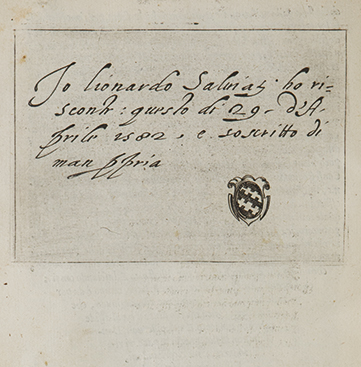 Io lionardo Salviati ho ri=
scontr: questo di 29- d'A=
prile 1582, e soscritto di
man ppria